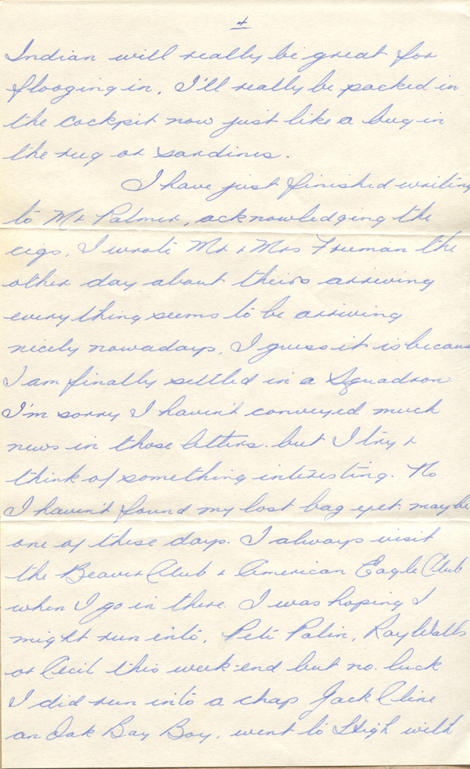 4
Indian will really be great for
floozing in. I'll really be packed in
the cockpit now just like a bug in
the rug or sardines.
I have just finished writing
to Mr Palmer, acknowledging the
cigs. I wrote Mr & Mrs Freeman the
other day about theirs arriving
everything seems to be arriving
nicely nowadays, I guess it is because
I am finally settled in a Squadron
I'm sorry I haven't conveyed much
news in those letters. but I try &
think of something interesting. No
I haven't found my lost bag yet. maybe
one of these days. I always visit
the Beaver Club & American Eagle Club
when I go in there. I was hoping I
might run into, Pete Palin, Ray Watts
or Cecil this week-end but no luck
I did run into a chap Jack Cline
an Oak Bay Boy. went to High with